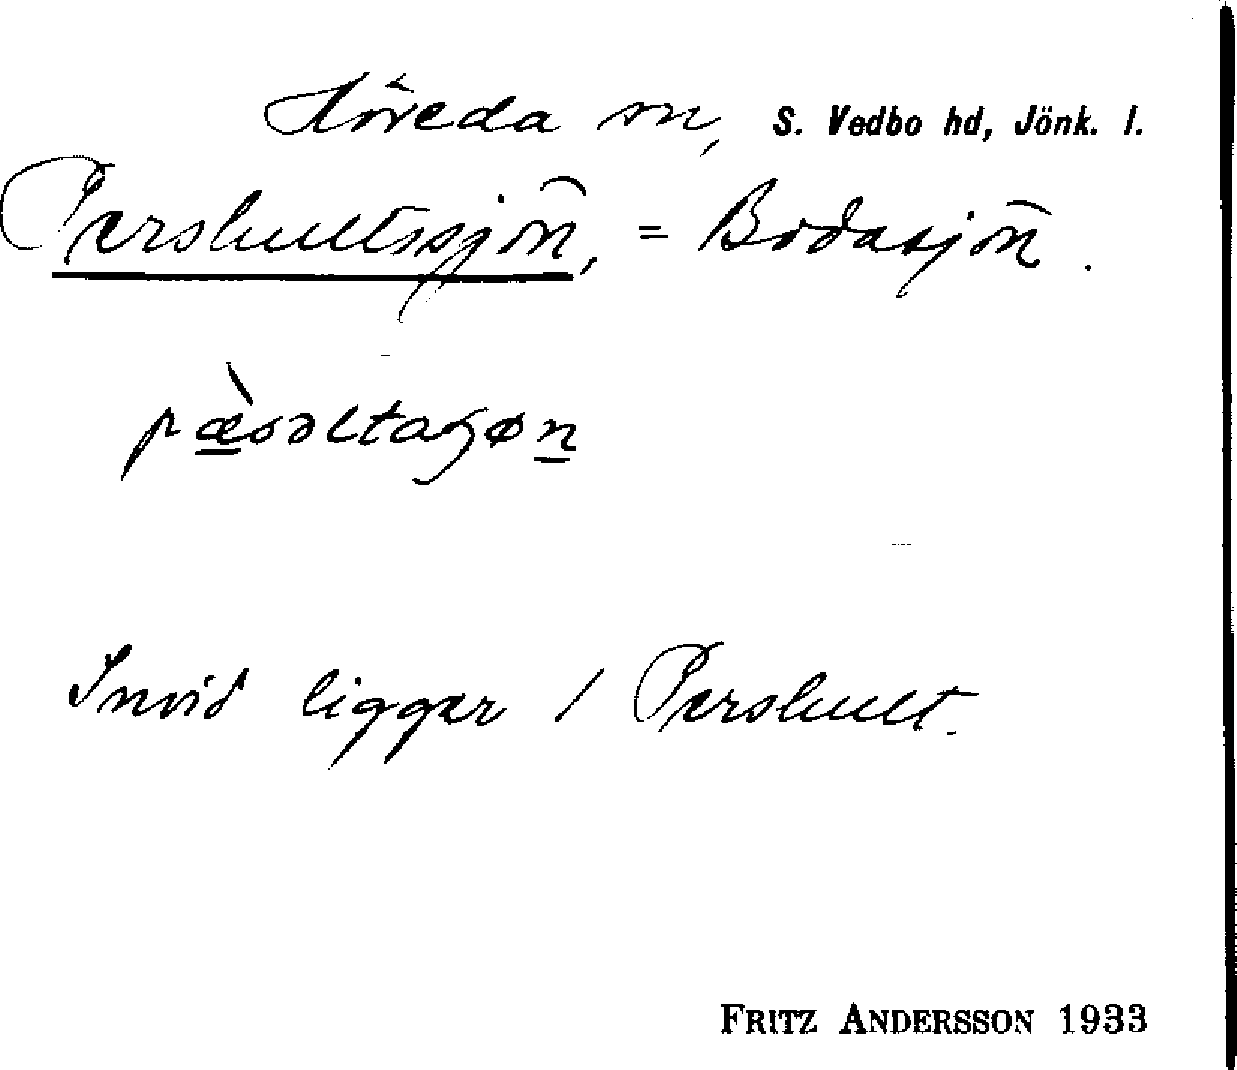 Höreda sn, S. Vedbo hd, Jönk. l.
Pershultssjön, = Bodasjön.
pæ̀səltaʂøn
Invid ligger / Pershult.
FRITZ ANDERSSON 1933